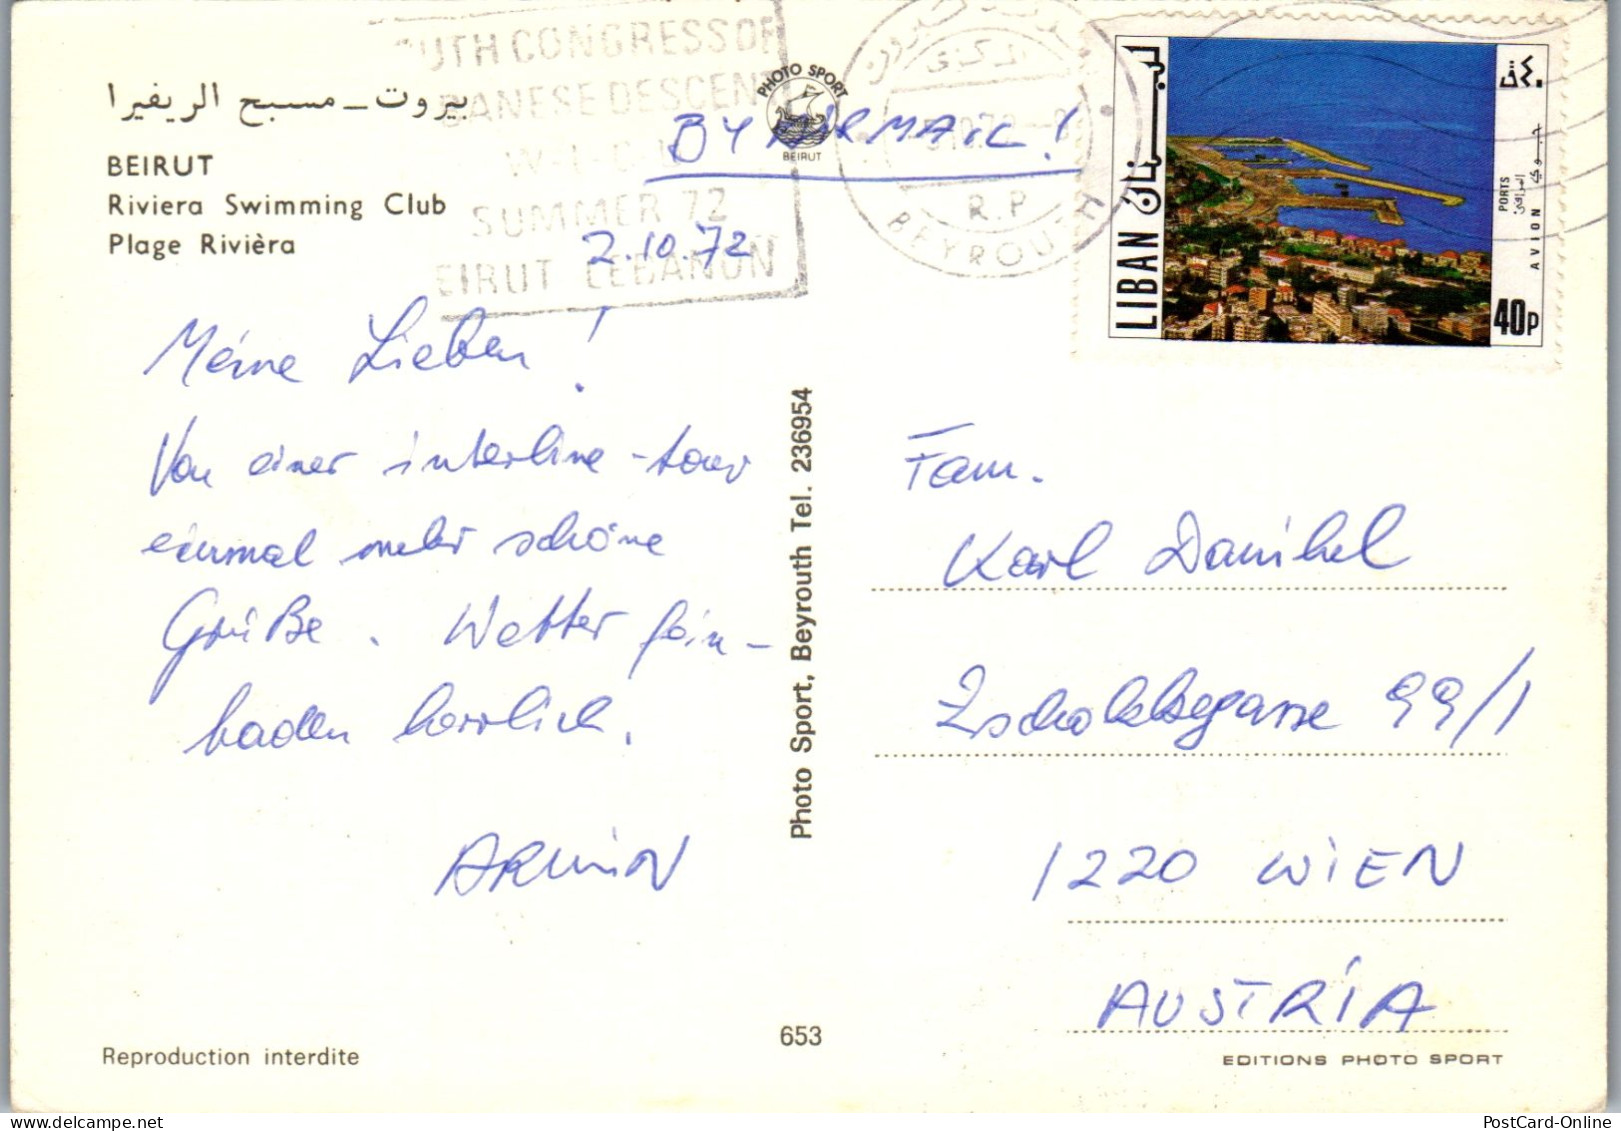 بيروت - مسبح الريفيرا
BEIRUT
Riviera Swimming Club
Plage Rivièra
UTH CONGRESS OF
BANESE DESCENT
SUMMER 72
EIRUT LEBANON
PHOTO SPORT
BEIRUT
BY AIRMAIL!
2.10.72
R.P
BEYROUTH
لبنان
LIBAN
PORTS
المرافئ
AVION
جوي
40P
Meine Lieben!
Von einer interline-tour
einmal mehr schöne
Grüße. Wetter fein -
baden herrlich.
ARMIN
Photo Sport, Beyrouth Tel. 236954
Fam.
Karl Danihel
Zschokkegasse 99/1
1220 WIEN
AUSTRIA
Reproduction interdite
653
EDITIONS PHOTO SPORT
PostCard-Online